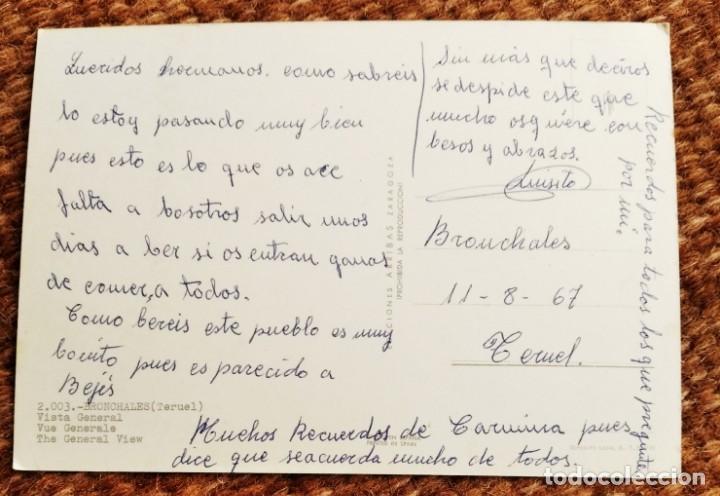 Queridos hermanos. como sabreis
lo estoy pasando muy bien
pues esto es lo que os ace
falta a bosotros salir unos
dias a ber si os entran ganas
de comer, a todos.
Como bereis este pueblo es muy
bonito pues es parecido a
Bejis
Sin más que deciros
se despide este que
mucho os quiere con
besos y abrazos.
Luisito
Bronchales
11-8-67
Teruel.
Recuerdos para todos los que pregunten
por mi.
Muchos Recuerdos de Carmina pues
dice que seacuerda mucho de todos.
2.003.-BRONCHALES(Teruel)
Vista General
Vue Generale
The General View
EDICIONES ARRIBAS ZARAGOZA
(PROHIBIDA LA REPRODUCCION)
todocoleccion.net